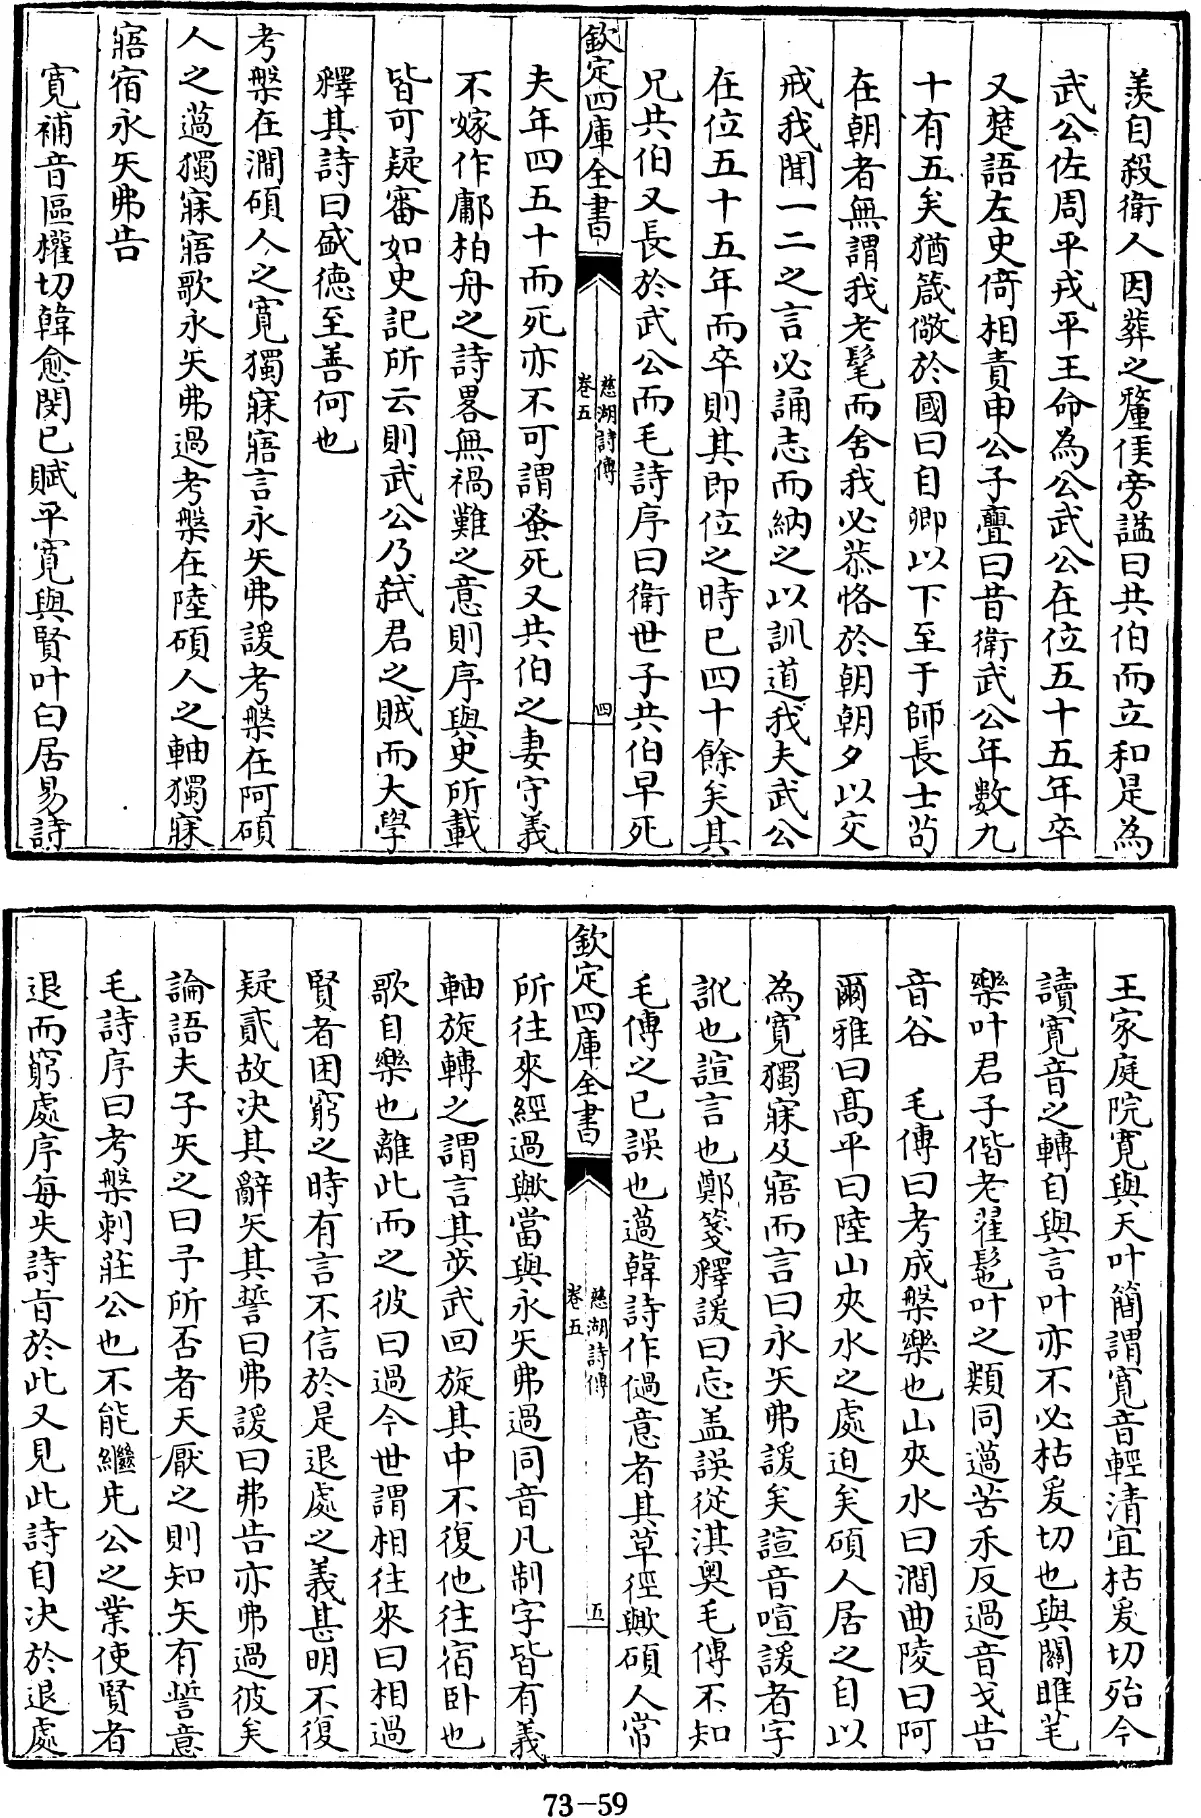 羨自殺衛人因葬之釐侯旁謚曰共伯而立和是為
武公佐周平戎平王命為公武公在位五十五年卒
又楚語左史倚相責申公子亹曰昔衛武公年數九
十有五矣猶箴儆於國曰自卿以下至于師長士茍
在朝者無謂我老髦而舍我必恭恪於朝朝夕以交
戒我聞一二之言必誦志而納之以訓道我夫武公
在位五十五年而卒則其即位之時已四十餘矣其
兄共伯又長於武公而毛詩序曰衛世子共伯早死
欽定四庫全書
慈湖詩傳
卷五
四
夫年四五十而死亦不可謂蚤死又共伯之妻守義
不嫁作鄘柏舟之詩畧無禍難之意則序與史所載
皆可疑審如史記所云則武公乃弑君之賊而大學
釋其詩曰盛德至善何也
考槃在澗碩人之寛獨寐寤言永矢弗諼考槃在阿碩
人之薖獨寐寤歌永矢弗過考槃在陸碩人之軸獨寐
寤宿永矢弗告
寛補音區權切韓愈閔已賦平寛與賢叶白居易詩
王家庭院寛與天叶簡謂寛音輕清宜枯爰切殆今
讀寛音之轉自與言叶亦不必枯爰切也與關雎芼
樂叶君子偕老翟髢叶之類同薖苦禾反過音戈告
音谷 毛傳曰考成槃樂也山夾水曰澗曲陵曰阿
爾雅曰髙平曰陸山夾水之處迫矣碩人居之自以
為寛獨寐及寤而言曰永矢弗諼矣諠音喧諼者字
訛也諠言也鄭箋釋諼曰忘盖誤從淇奥毛傳不知
毛傳之已誤也薖韓詩作𠈊意者其草徑歟碩人常
欽定四庫全書
慈湖詩傳
卷五
五
所往來經過歟當與永矢弗過同音凡制字皆有義
軸旋轉之謂言其步武回旋其中不復他往宿卧也
歌自樂也離此而之彼曰過今世謂相往來曰相過
賢者困窮之時有言不信於是退處之義甚明不復
疑貳故决其辭矢其誓曰弗諼曰弗告亦弗過彼矣
論語夫子矢之曰予所否者天厭之則知矢有誓意
毛詩序曰考槃刺莊公也不能繼先公之業使賢者
退而窮處序每失詩旨於此又見此詩自决於退處
73-59